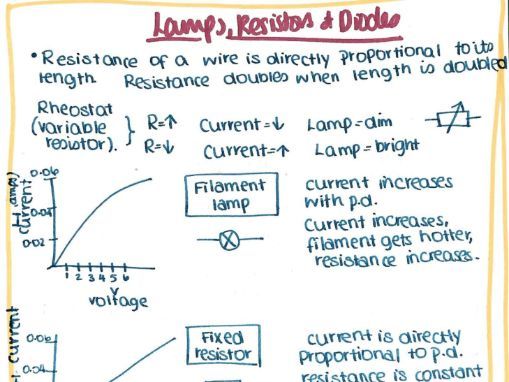 Lamps, Resistors & Diodes
• Resistance of a wire is directly proportional to its
length. Resistance doubles when length is doubled
Rheostat
(variable
resistor). } R=↑ Current=↓ Lamp=dim
R=↓ Current=↑ Lamp=bright
I (amps)
current
0.06
0.04
0.02
1 2 3 4 5 6
V
voltage
Filament
lamp
current increases
with p.d.
Current increases,
filament gets hotter,
resistance increases.
current
0.06
0.04
Fixed
resistor
current is directly
proportional to p.d.
resistance is constant